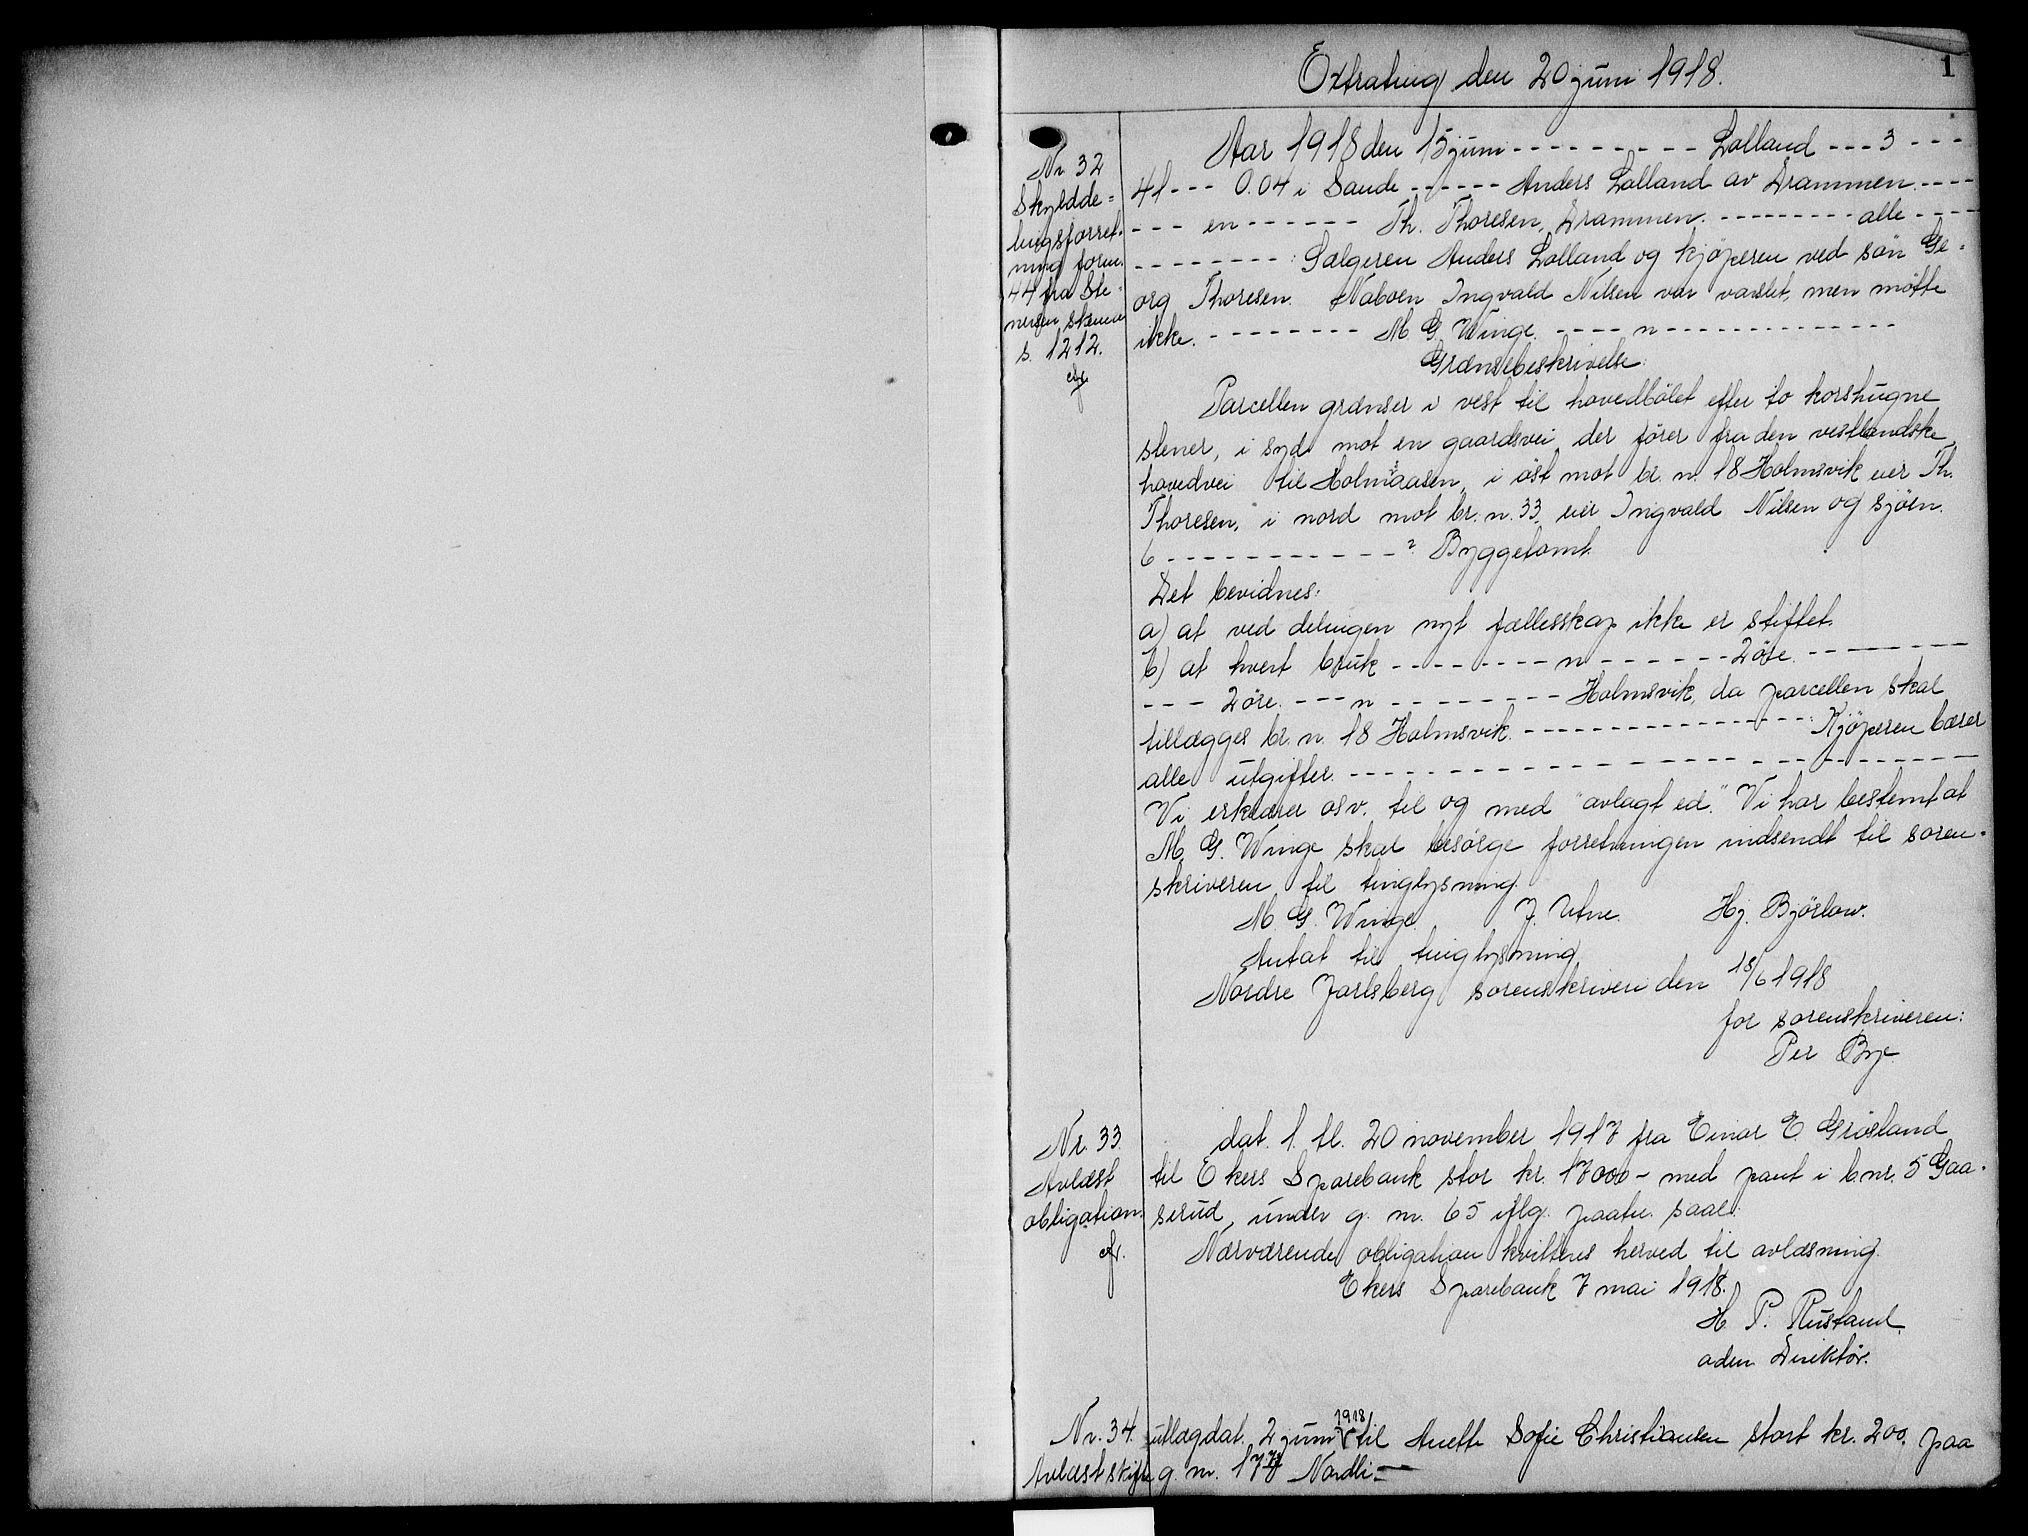 Extrating den 20 juni 1918.
1
Nr. 32
Skyldde=
lingsforret=
ning form.
44 fra Ste=
nersen skema
s. 1212.
Aar 1918 den 15 juni - - - - - - - - - Lolland - - - 3 - - -
41 - - - 0.04 i Sande - - - - - - Anders Lolland av Drammen - - - -
- - - en - - - - - - Th. Thoresen, Drammen. - - - - - - - - - alle - - - -
- - - - - - - - : Sælgeren Anders Lolland og kjøperen ved søn Ge=
org Thoresen. Naboen Ingvald Nilsen var varslet, men møtte
ikke. - - - - - - - - M. G. Winge. - - - - n - - - - - - - - - - - - - -
Grænsebeskrivelse:
Parcellen grænser i vest til hovedbølet efter to korshugne
stener, i syd mot en gaardsvei der fører fra den vestlandske
hovedvei til Holmsaasen, i øst mot br. n. 18 Holmsvik eier Th.
Thoresen, i nord mot br. n. 33, eier Ingvald Nilsen og sjøen.
6 - - - - - - - - - - - ? Byggetomt.
Det bevidnes:
a) at ved delingen nyt fællesskap ikke er stiftet.
b) at hvert bruk - - - - - - - - n - - - - - - - 2 øre. - - - - - - - -
- - - 2 øre. - - - n - - - - - - - - Holmsvik, da parcellen skal
tillægges br. n. 18 Holmsvik. - - - - - - - - - - - - - - - : Kjøperen bærer
alle utgifter. - - - - - - - - - - - - - - - - - - - - - - - -
Vi erklærer osv. til og med "avlagt ed." Vi har bestemt at
M. G. Winge skal besørge forretningen indsendt til soren=
skriveren til tinglysning.
M. G. Winge. J. Utne. Hj. Bjørlow.
Antat til tinglysning
Nordre Jarlsberg sorenskriveri den 18/6 1918
for sorenskriveren:
Per Bye.
Nr. 33.
Avlæst
obligation.
cfr.
dat. 1. tl. 20 november 1917 fra Einar E. Grøsland
til Ekers Sparebank stor kr. 17000 - med pant i b.nr. 5 Gaa=
serud, under g. nr. 65 iflg. paategn. saal.:
Nærværende obligation kvitteres herved til avlæsning.
Ekers Sparebank 7 mai 1918.
H. P. Rustand.
adm. Direktør.
Nr. 34.
Avlæst skifte
utlægdat. 2 juni 1918 til Anette Sofie Christiansen stort kr. 200. paa
g. nr. 177 Nordli -